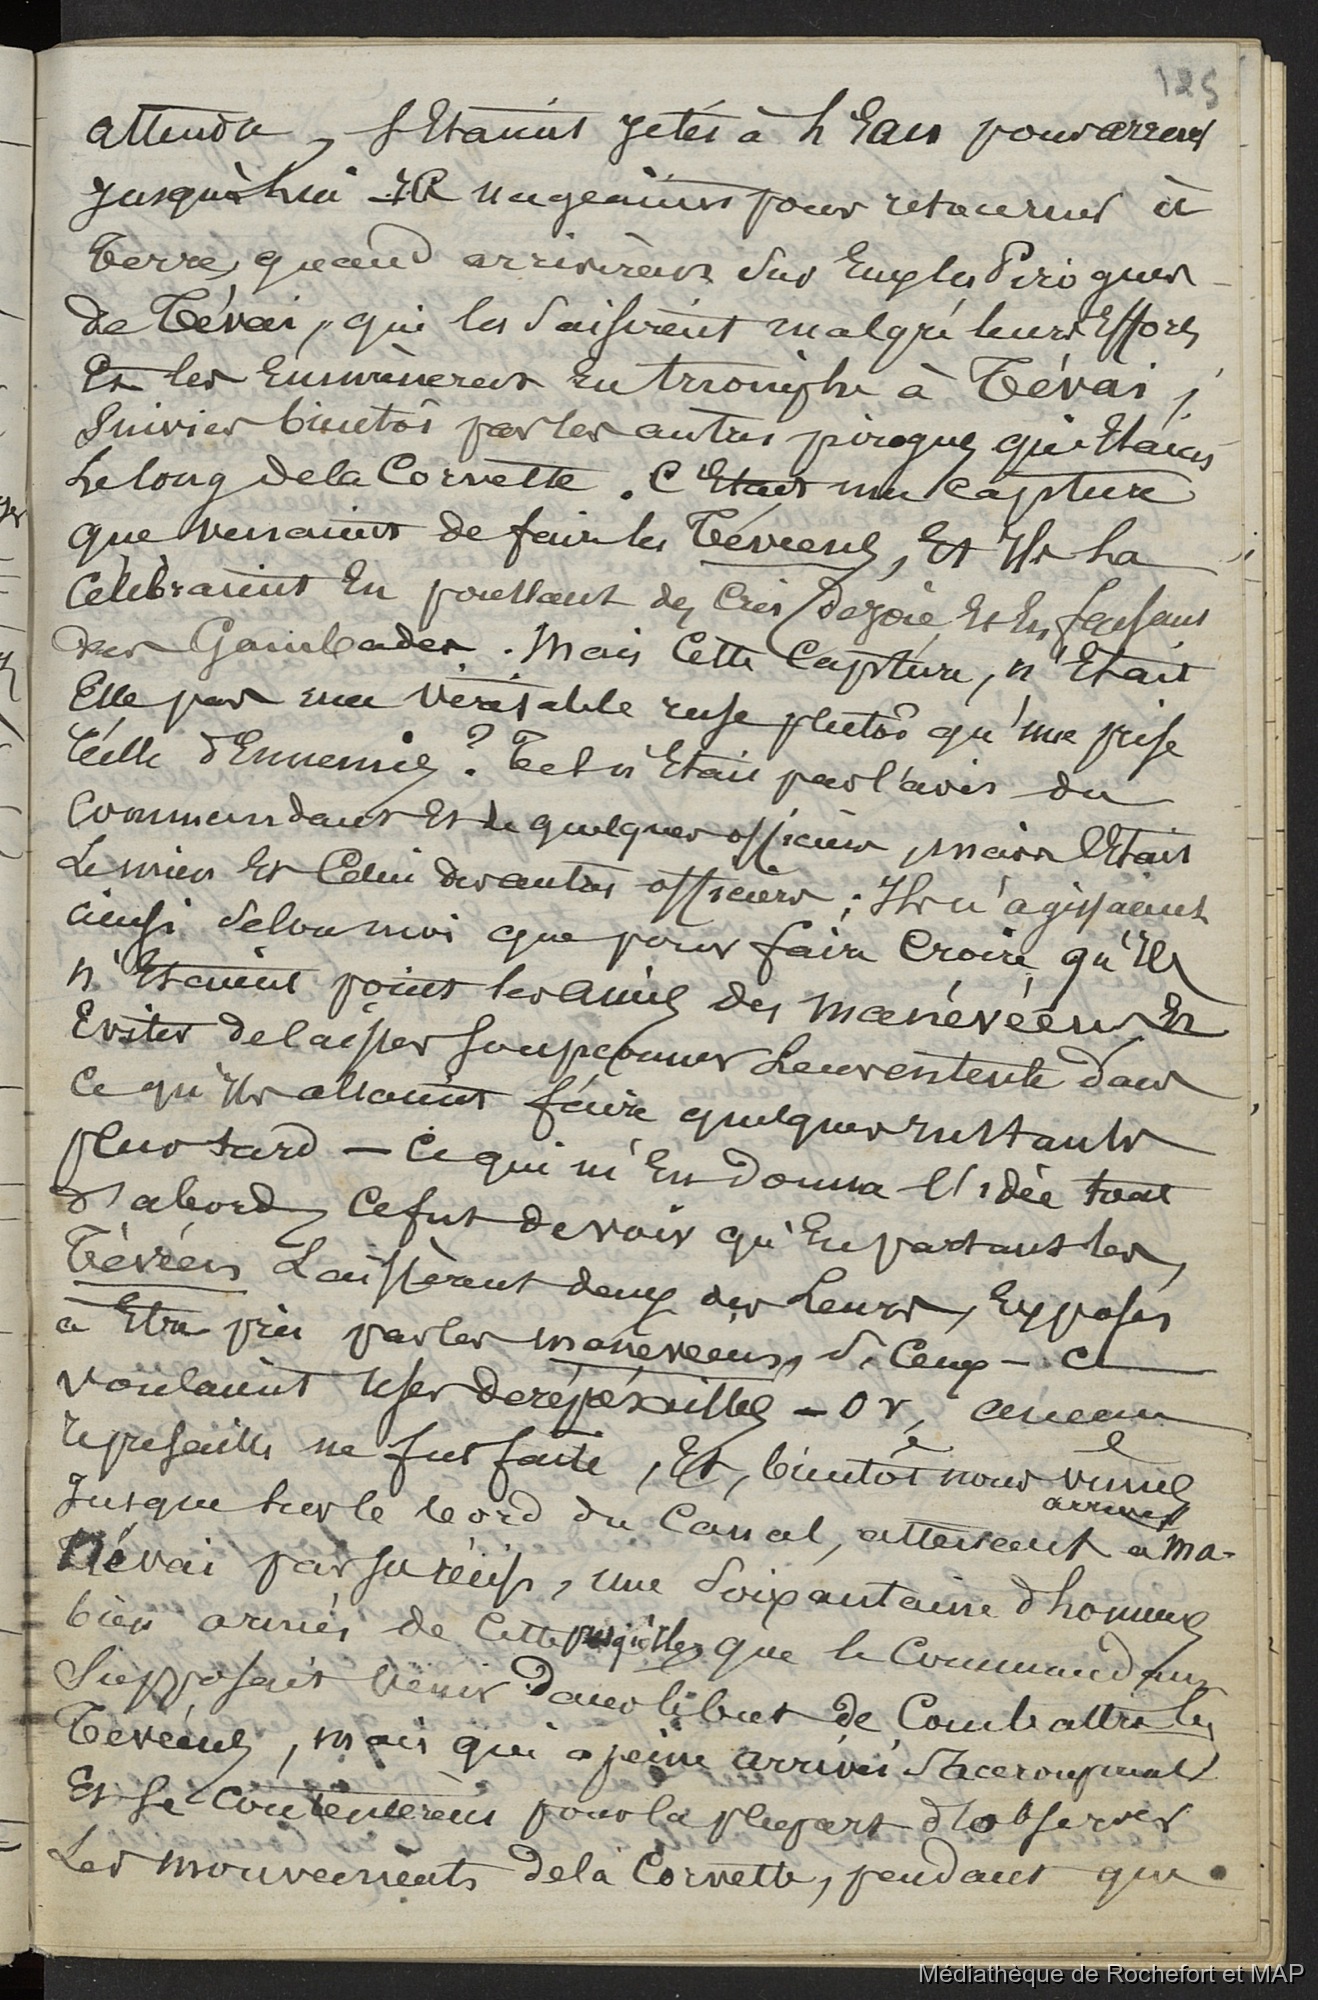 125
attendre, s'Etaient jetés à l'Eau pour arriver
jusqu'à lui Ils nageaient pour retourner à
terre, quand arrivèrent sur Eux les Pirogues
de Tévai, qui les saisirent malgré leurs Efforts
Et les Emmenèrent En triomphe à Tévai,
Suivies bientôt par les autres pirogues qui Etaient
le long de la Corvette. C'Etait une Capture
que venaient de faire les Tévéens, Et Ils la
Célébraient En poussant des Cris de joie Et En faisant
des Gambades. Mais Cette Capture, n'Etait
Elle pas une véritable ruse plutôt qu'une prise
réelle d'Ennemis? Tel n'Etait pas l'avis du
Commandant Et de quelques officiers, mais c'Etait
le mien Et Celui des autres officiers; Ils n'agissaient
ainsi selon moi que pour faire Croire qu'Ils
n'Etaient point les amis des Manévéens Et
Eviter de laisser soupçonner leur entente dans
Ce qu'Ils allaient faire quelques instants
plus tard — Ce qui m'En donna l'idée tout
d'abord, Ce fut de voir qu'En partant les
Tévéens laissèrent deux des leurs, Exposés
à Etre pris par les manévéens, si Ceux-ci
voulaient user de représailles — Or, aucune
représaille ne fut faite, Et, bientôt nous vîmes
jusque sur le bord du Canal, attenant à Ma-
arriver
névai par su récif, une soixantaine d'hommes
bien armés de Cette presqu'Ile que le Commandant
Supposait venir dans le but de Combattre les
Tévéens, mais qui à peine arrivés s'accroupirent
Et se Contentèrent pour la plupart d'observer
Les mouvements de la Corvette, pendant que
Médiathèque de Rochefort et MAP